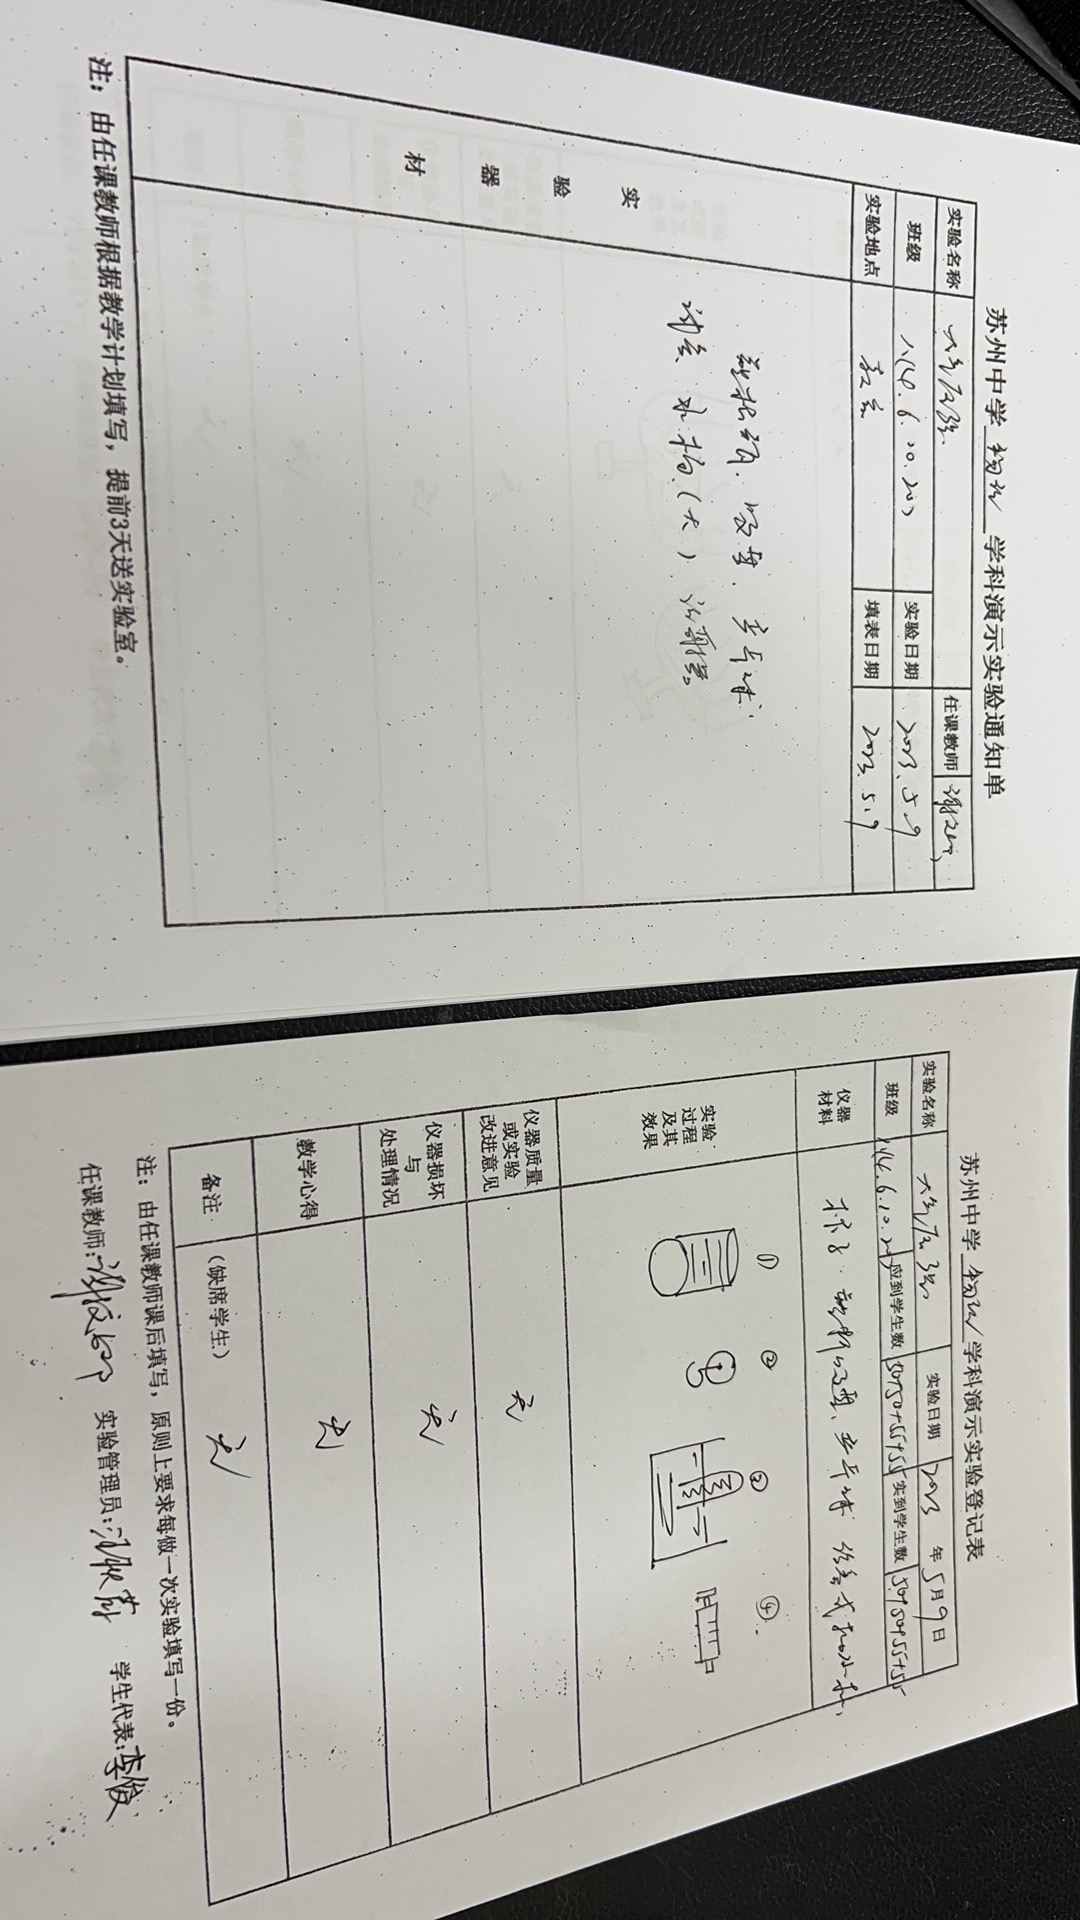 苏州中学 物理 学科演示实验通知单
实验名称 大气压强 任课教师
班级 八(4.6.10.20) 实验日期 2023.5.9
实验地点 教室 填表日期 2023.5.9
实验器材
吸盘、乒乓球、
水槽(大)
注：由任课教师根据教学计划填写，提前3天送实验室。
苏州中学 物理 学科演示实验登记表
实验名称 大气压强 实验日期 2023 年 5月 9日
班级 应到学生数 50+50+55+55 实到学生数 50+50+55+55
仪器材料 杯子、吸盘、乒乓球
实验过程及其效果 ① ② ③ ④
仪器质量或实验改进意见 无
仪器损坏与处理情况 无
教学心得 无
备注 (缺席学生) 无
注：由任课教师课后填写，原则上要求每做一次实验填写一份。
任课教师: 实验管理员: 学生代表:李俊